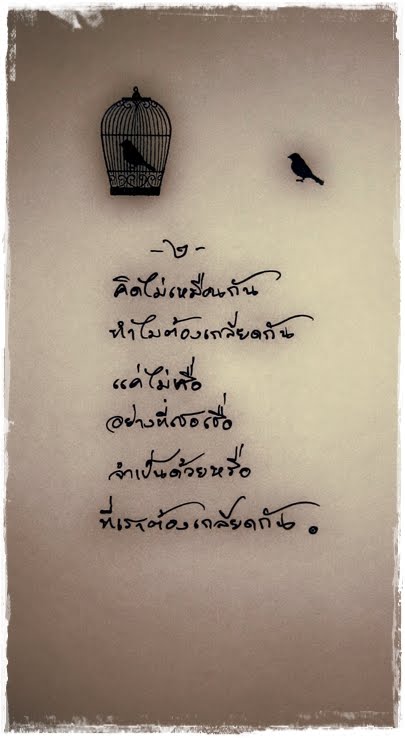 -๒-
คิดไม่เหมือนกัน
ทำไมต้องเกลียดกัน
แค่ไม่เชื่อ
อย่างที่เธอเชื่อ
จำเป็นด้วยหรือ
ที่เราต้องเกลียดกัน